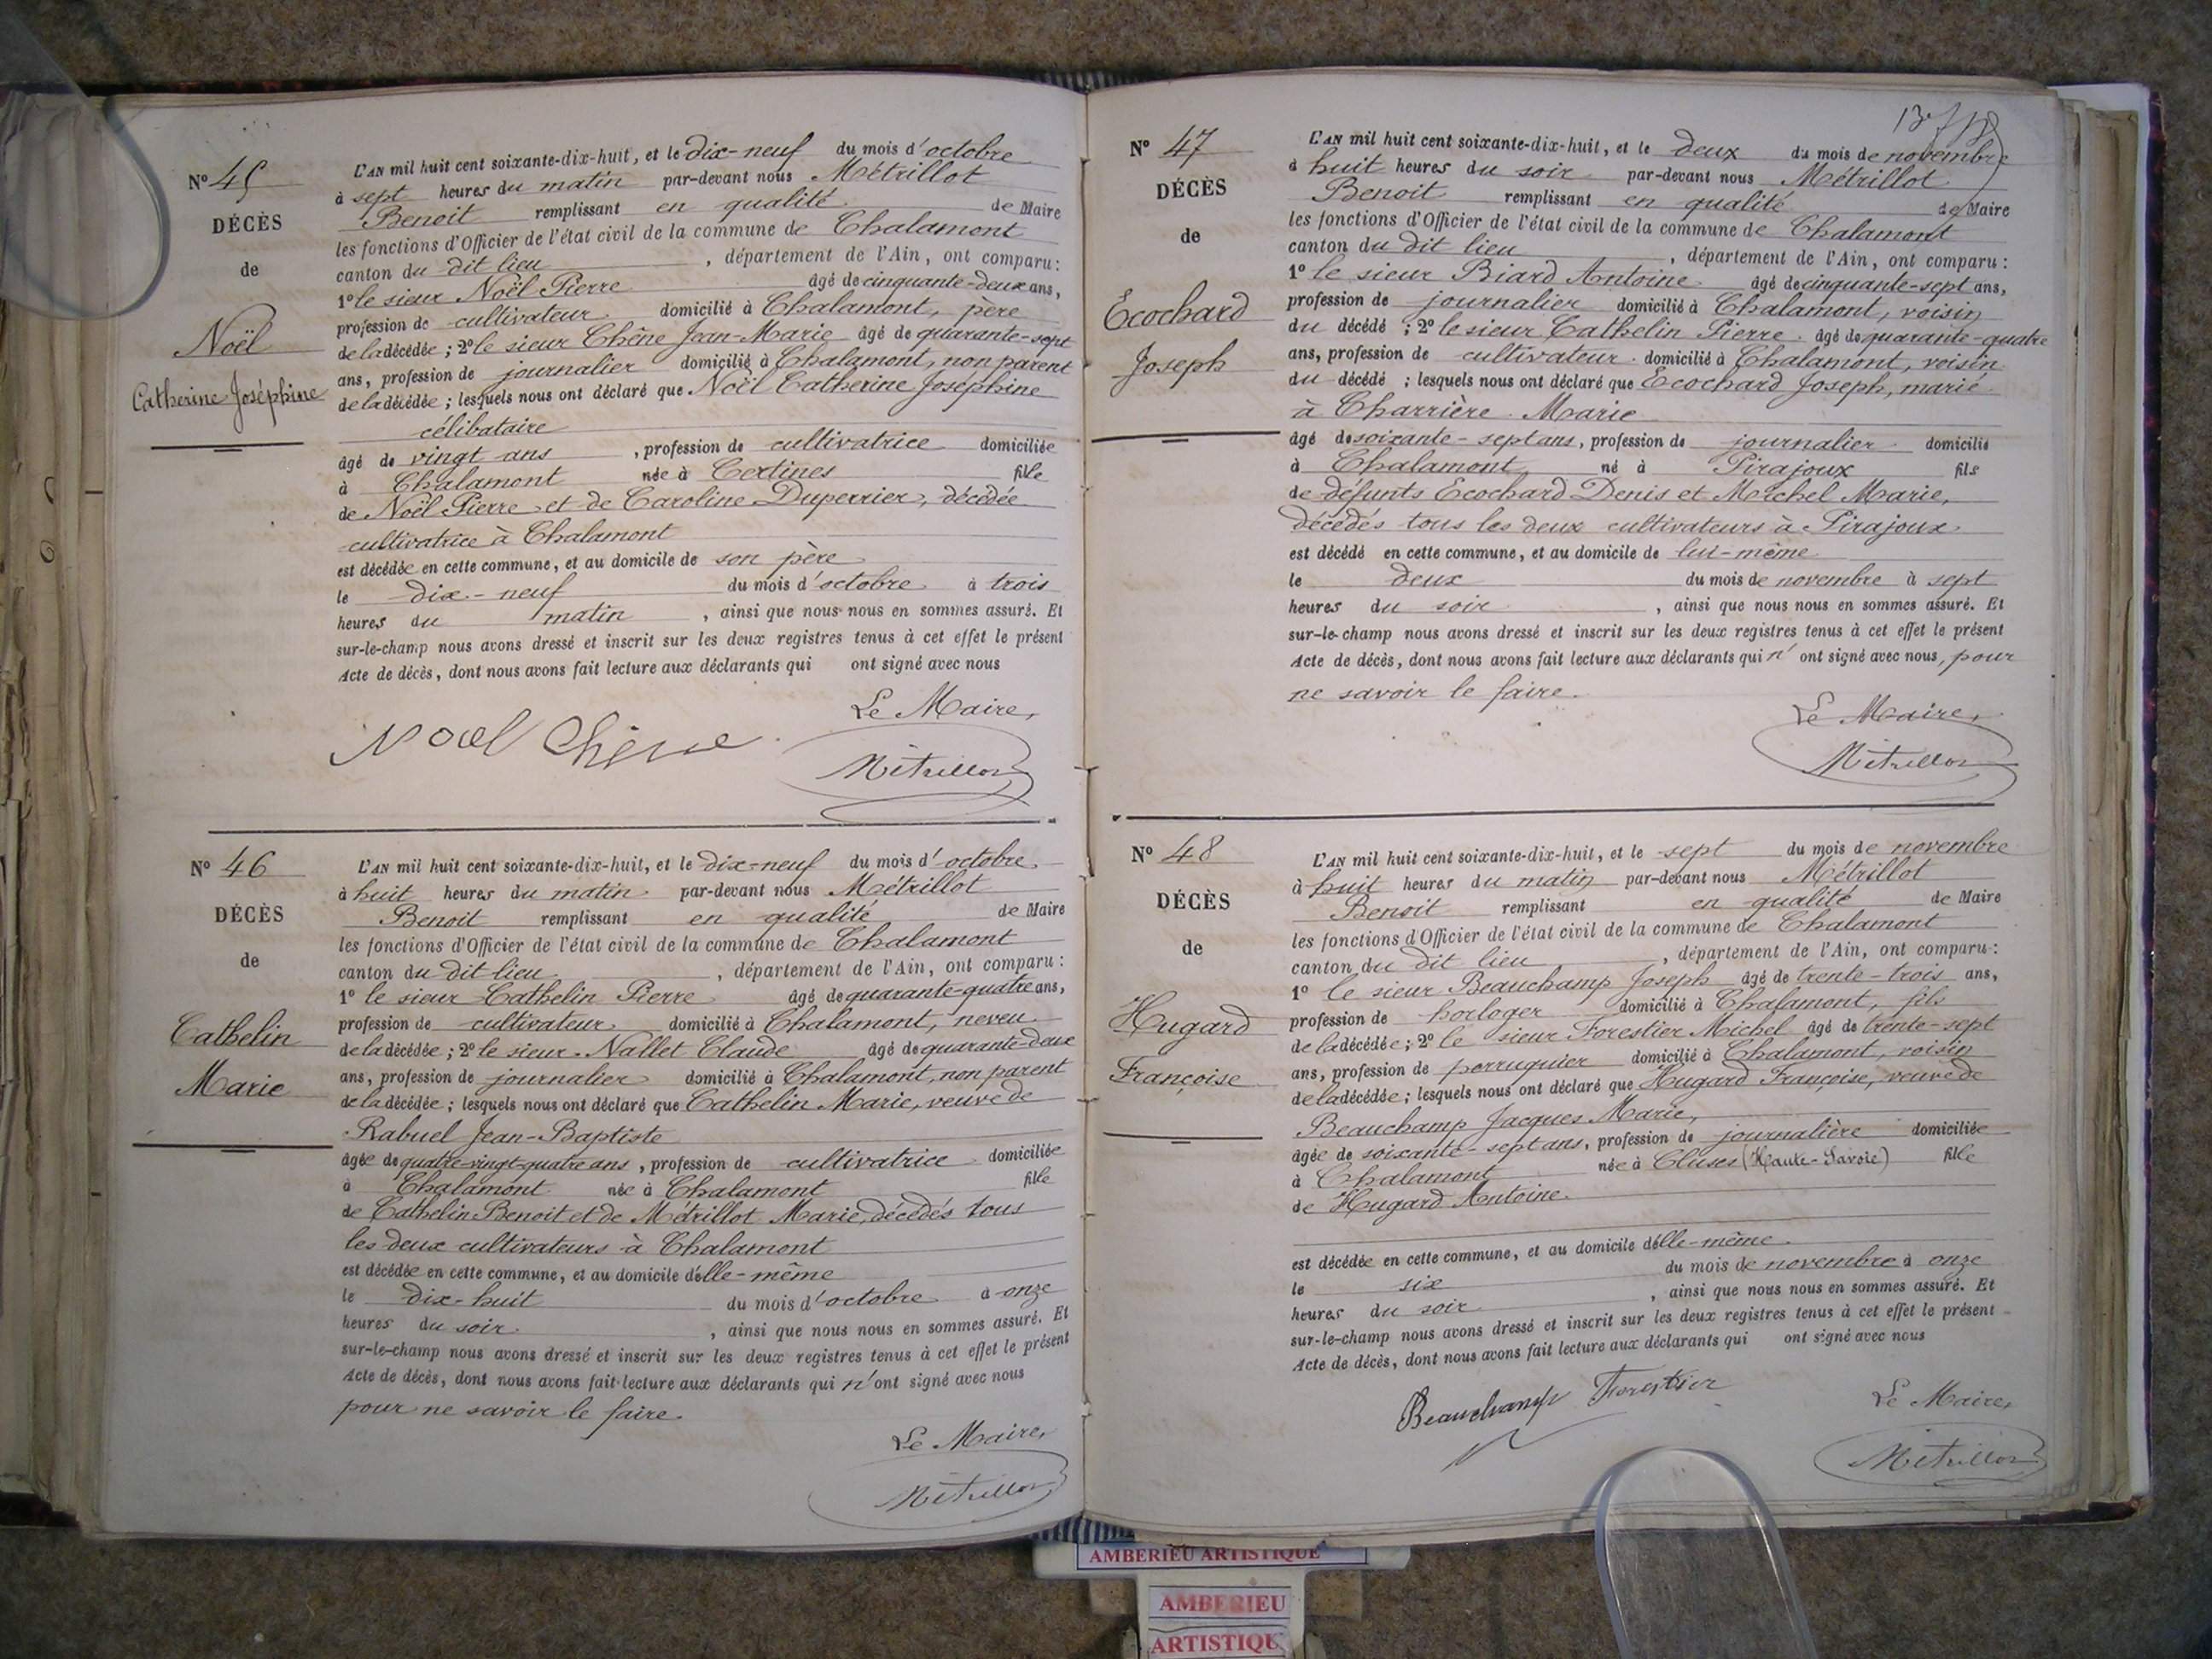 Nº 45
DÉCÈS
de
Noël
Catherine Joséphine
L'AN mil huit cent soixante-dix-huit, et le dix-neuf du mois d'octobre
à sept heures du matin par-devant nous Métrillot
Benoit remplissant en qualité de Maire
les fonctions d'Officier de l'état civil de la commune de Chalamont
canton du dit lieu , département de l'Ain, ont comparu :
1º le sieur Noël Pierre âgé de cinquante-deux ans,
profession de cultivateur domicilié à Chalamont, père
de la décédée ; 2º le sieur Chêne Jean-Marie âgé de quarante-sept
ans, profession de journalier domicilié à Chalamont, non parent
de la décédée ; lesquels nous ont déclaré que Noël Catherine Joséphine
célibataire
âgé de vingt ans , profession de cultivatrice domiciliée
à Chalamont née à Certines fille
de Noël Pierre et de Caroline Duperrier, décédée
cultivatrice à Chalamont
est décédée en cette commune, et au domicile de son père
le dix-neuf du mois d'octobre à trois
heures du matin , ainsi que nous nous en sommes assuré. Et
sur-le-champ nous avons dressé et inscrit sur les deux registres tenus à cet effet le présent
Acte de décès, dont nous avons fait lecture aux déclarants qui ont signé avec nous
Le Maire,
Noel Chêne
Métrillot
Nº 46
DÉCÈS
de
Cathelin
Marie
L'AN mil huit cent soixante-dix-huit, et le dix-neuf du mois d'octobre
à huit heures du matin par-devant nous Métrillot
Benoit remplissant en qualité de Maire
les fonctions d'Officier de l'état civil de la commune de Chalamont
canton du dit lieu , département de l'Ain, ont comparu :
1º le sieur Cathelin Pierre âgé de quarante-quatre ans,
profession de cultivateur domicilié à Chalamont, neveu
de la décédée ; 2º le sieur Nallet Claude âgé de quarante-deux
ans, profession de journalier domicilié à Chalamont, non parent
de la décédée ; lesquels nous ont déclaré que Cathelin Marie, veuve de
Rabuel Jean-Baptiste
âgée de quatre-vingt-quatre ans , profession de cultivatrice domiciliée
à Chalamont née à Chalamont fille
de Cathelin Benoit et de Métrillot Marie, décédés tous
les deux cultivateurs à Chalamont
est décédée en cette commune, et au domicile d'elle-même
le dix-huit du mois d'octobre à onze
heures du soir , ainsi que nous nous en sommes assuré. Et
sur-le-champ nous avons dressé et inscrit sur les deux registres tenus à cet effet le présent
Acte de décès, dont nous avons fait lecture aux déclarants qui n'ont signé avec nous
pour ne savoir le faire.
Le Maire,
Métrillot
Nº 47
DÉCÈS
de
Ecochard
Joseph
L'AN mil huit cent soixante-dix-huit, et le deux du mois de novembre
à huit heures du soir par-devant nous Métrillot
Benoit remplissant en qualité de Maire
les fonctions d'Officier de l'état civil de la commune de Chalamont
canton du dit lieu , département de l'Ain, ont comparu :
1º le sieur Biard Antoine âgé de cinquante-sept ans,
profession de journalier domicilié à Chalamont, voisin
du décédé ; 2º le sieur Cathelin Pierre âgé de quarante-quatre
ans, profession de cultivateur domicilié à Chalamont, voisin
du décédé ; lesquels nous ont déclaré que Ecochard Joseph, marié
à Charrière Marie
âgé de soixante-sept ans, profession de journalier domicilié
à Chalamont, né à Pirajoux fils
de défunts Ecochard Denis et Michel Marie,
décédés tous les deux cultivateurs à Pirajoux
est décédé en cette commune, et au domicile de lui-même
le deux du mois de novembre à sept
heures du soir , ainsi que nous nous en sommes assuré. Et
sur-le-champ nous avons dressé et inscrit sur les deux registres tenus à cet effet le présent
Acte de décès, dont nous avons fait lecture aux déclarants qui n'ont signé avec nous, pour
ne savoir le faire.
Le Maire,
Métrillot
Nº 48
DÉCÈS
de
Hugard
Françoise
L'AN mil huit cent soixante-dix-huit, et le sept du mois de novembre
à huit heures du matin par-devant nous Métrillot
Benoit remplissant en qualité de Maire
les fonctions d'Officier de l'état civil de la commune de Chalamont
canton du dit lieu , département de l'Ain, ont comparu :
1º le sieur Beauchamp Joseph âgé de trente-trois ans,
profession de horloger domicilié à Chalamont, fils
de la décédée ; 2º le sieur Forestier Michel âgé de trente-sept
ans, profession de perruquier domicilié à Chalamont, voisin
de la décédée ; lesquels nous ont déclaré que Hugard Françoise, veuve de
Beauchamp Jacques Marie,
âgée de soixante-sept ans, profession de journalière domiciliée
à Chalamont née à Cluses (Haute-Savoie) fille
de Hugard Antoine.
est décédée en cette commune, et au domicile d'elle-même.
le six du mois de novembre à onze
heures du soir , ainsi que nous nous en sommes assuré. Et
sur-le-champ nous avons dressé et inscrit sur les deux registres tenus à cet effet le présent
Acte de décès, dont nous avons fait lecture aux déclarants qui ont signé avec nous
Beauchamp Forestier
Le Maire,
Métrillot
AMBERIEU ARTISTIQUE
AMBERIEU
ARTISTIQU